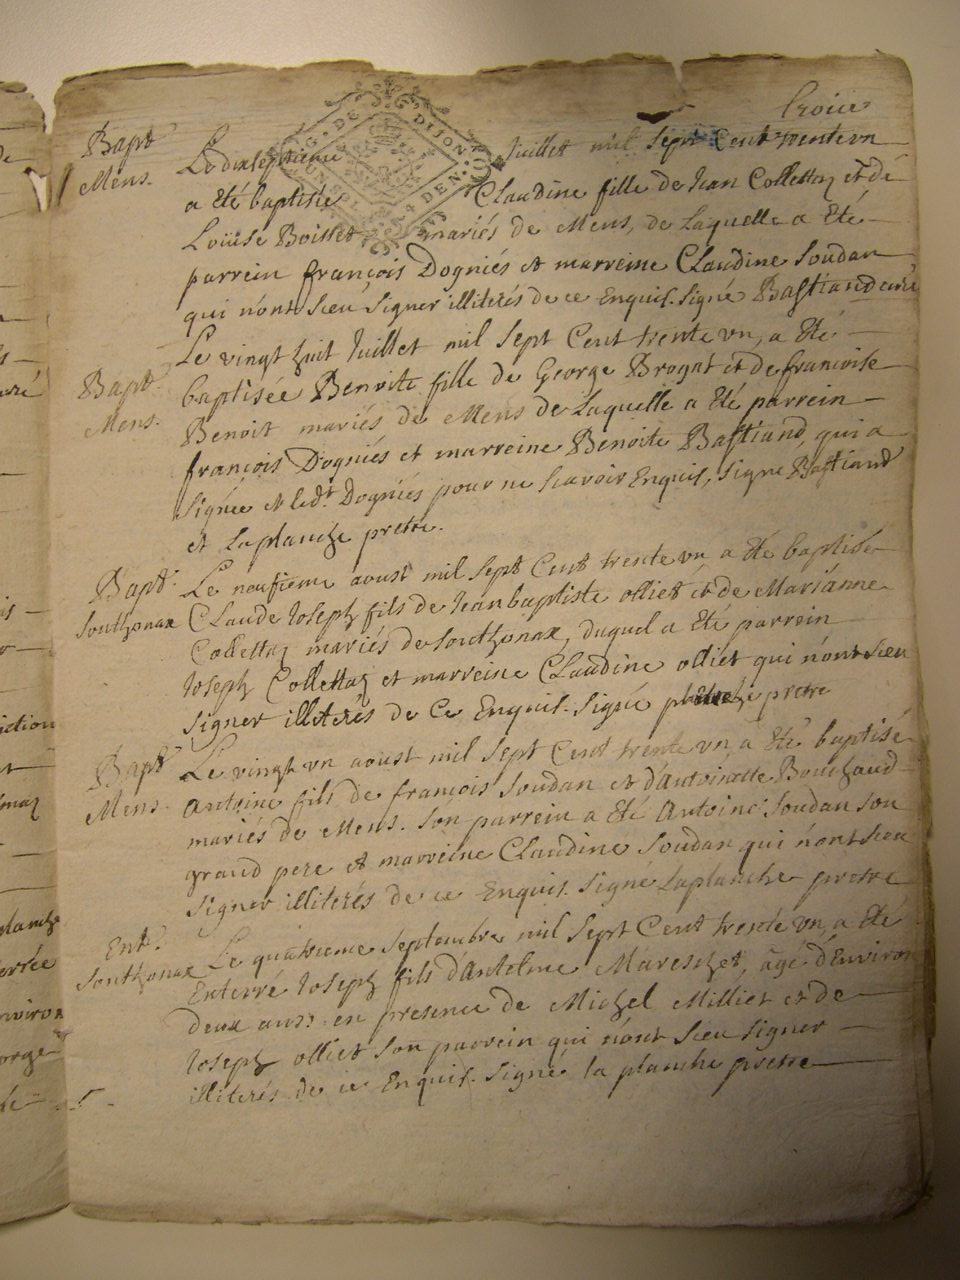 troice
Bapt
Mens.
Le dixseptieme Juillet mil sept Cent trente vn
a Eté baptisée Claudine fille de Jean Collettaz et de
Loüise Boisset mariés de Mens, de Laquelle a Eté
parrein françois Dogniés et marreine Claudine Soudan
qui n'ont sceu signer illiterés de ce Enquis. signé Bastiand curé
Bapt.
Mens.
Le vingt huit Juillet mil sept Cent trente vn, a Eté
baptisée Benoite fille de George Brogat et de francoise
Benoit mariés de Mens de Laquelle a Eté parrein
françois Dogniés et marreine Benoite Bastiand, qui a
signée et led.t Dogniés pour ne scavoir Enquis, signe Bastiand
et Laplanche pretre.
Bapt.
Southonax
Le neufieme aoust mil sept Cent trente vn a Eté baptisé
Claude Joseph fils de Jean baptiste olliet et de Marianne
Collettaz mariés de Southonax, duquel a Eté parrein
Joseph Collettaz et marreine Claudine olliet qui n'ont sceu
signer illiterés de Ce Enquis. signé pretre
Bapt
Mens.
Le vingt vn aoust mil sept Cent trente vn, a Eté baptisé
antoine fils de françois Soudan et d'antoinette Bouchaud
mariés de Mens. son parrein a Eté Antoine Soudan son
grand pere et marreine Claudine Soudan qui n'ont sceu
signer illiterés de ce Enquis. signé Laplanche pretre
Ent.
Southonax
Le quatrieme septembre mil sept Cent trente vn, a Eté
Enterré Joseph fils d'Antelme Mareschet, agé d'Environ
deux ans: en presence de Michel Milliet et de
Joseph olliet son parrein qui n'ont sceu signer
illiterés de ce Enquis. signé la planche pretre
G. DE DIJON